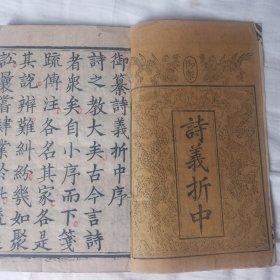 詩義折中
御纂詩義折中序
詩之教大矣古今言詩
者衆矣自小序而下箋
疏傳注各名其家各是
其說辨難糾紛幾如聚
訟曩嘗肄業於